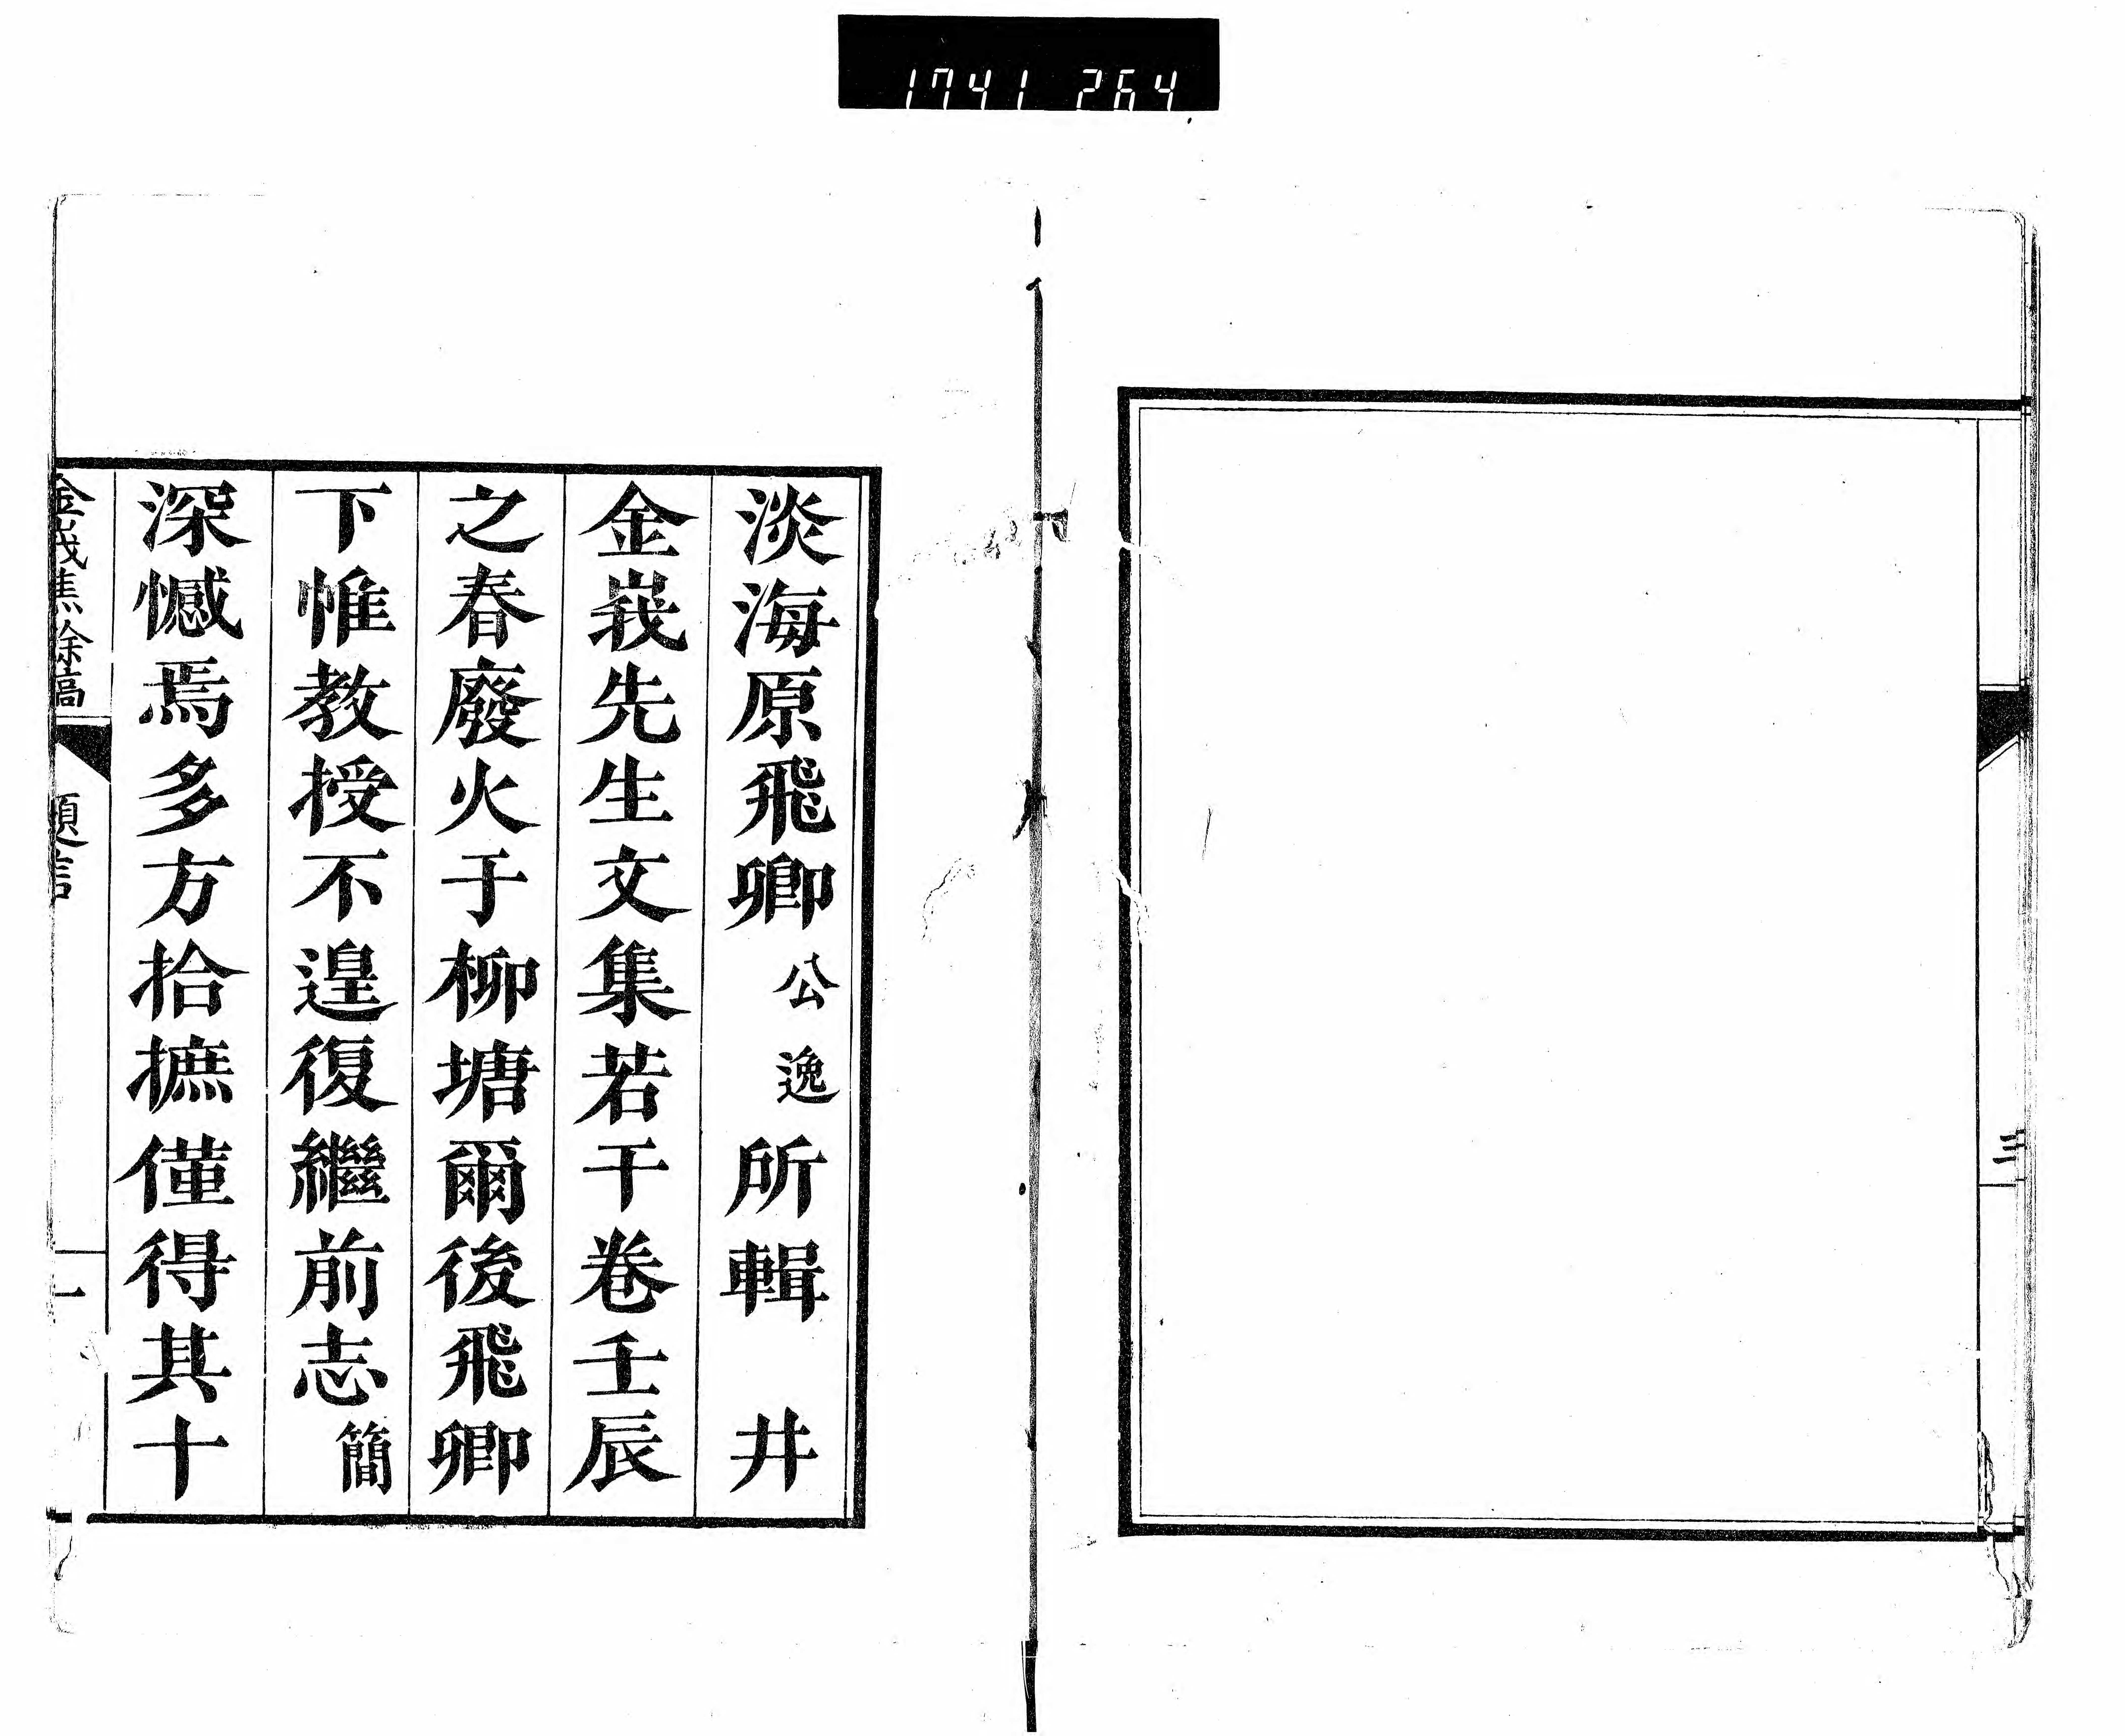 1741 264
三
淡海原飛卿公逸所輯　井
金峩先生文集若干卷壬辰
之春廢火于柳塘爾後飛卿
下帷教授不遑復繼前志簡
深憾焉多方拾摭僅得其十
金峩焦餘稿　題言　一